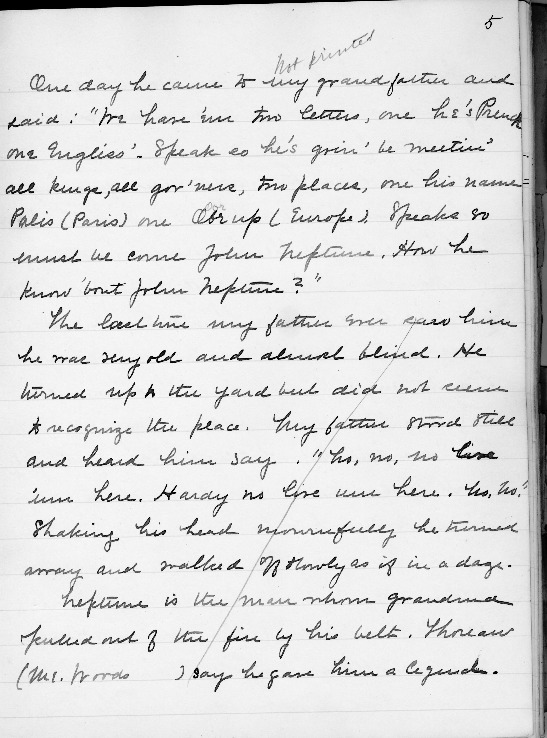 5
Not printed
One day he came to my grandfather and
said: "We have 'em two letters, one he's French
one Engliso'. Speak so he's goin' be meetin'
all kings, all gov'ners, two places, one his name
Palis (Paris) one up (Europe). Speaks so
must be come John Neptune. How he
know 'bout John Neptune?"
The last time my father ever saw him
he was very old and almost blind. He
turned up to the yard but did not seem
to recognize the place. My father stood still
and heard him say. "No, no, no live
'um here. Hardy no live um here. No, No."
Shaking his head mournfully he turned
away and walked off slowly as if in a daze.
Neptune is the man whom grandma
pulled out of the fire by his belt. Thoreau
(Me. Woods ) says he gave him a legend.